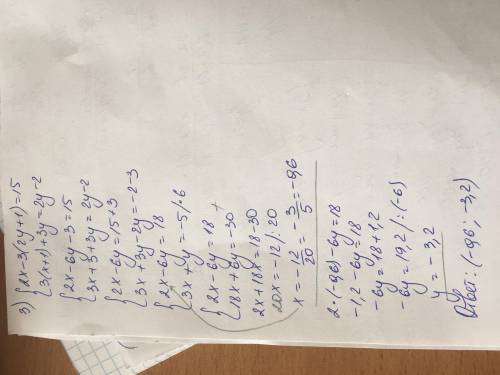 3) { 2x-3(2y+1)=15
{ 3(x+1)+3y=2y-2
{ 2x-6y-3=15
{ 3x+3+3y=2y-2
{ 2x-6y=15+3
{ 3x+3y-2y=-2-3
{ 2x-6y=18
{ 3x+y=-5/·6
{ 2x-6y=18 +
{ 18x+6y=-30
2x+18x=18-30
20x=-12/:20
x=-12/20=-3/5=-0,6
2·(-0,6)-6y=18
-1,2-6y=18
-6y=18+1,2
-6y=19,2/:(-6)
y=-3,2
Ответ: (-0,6; -3,2)